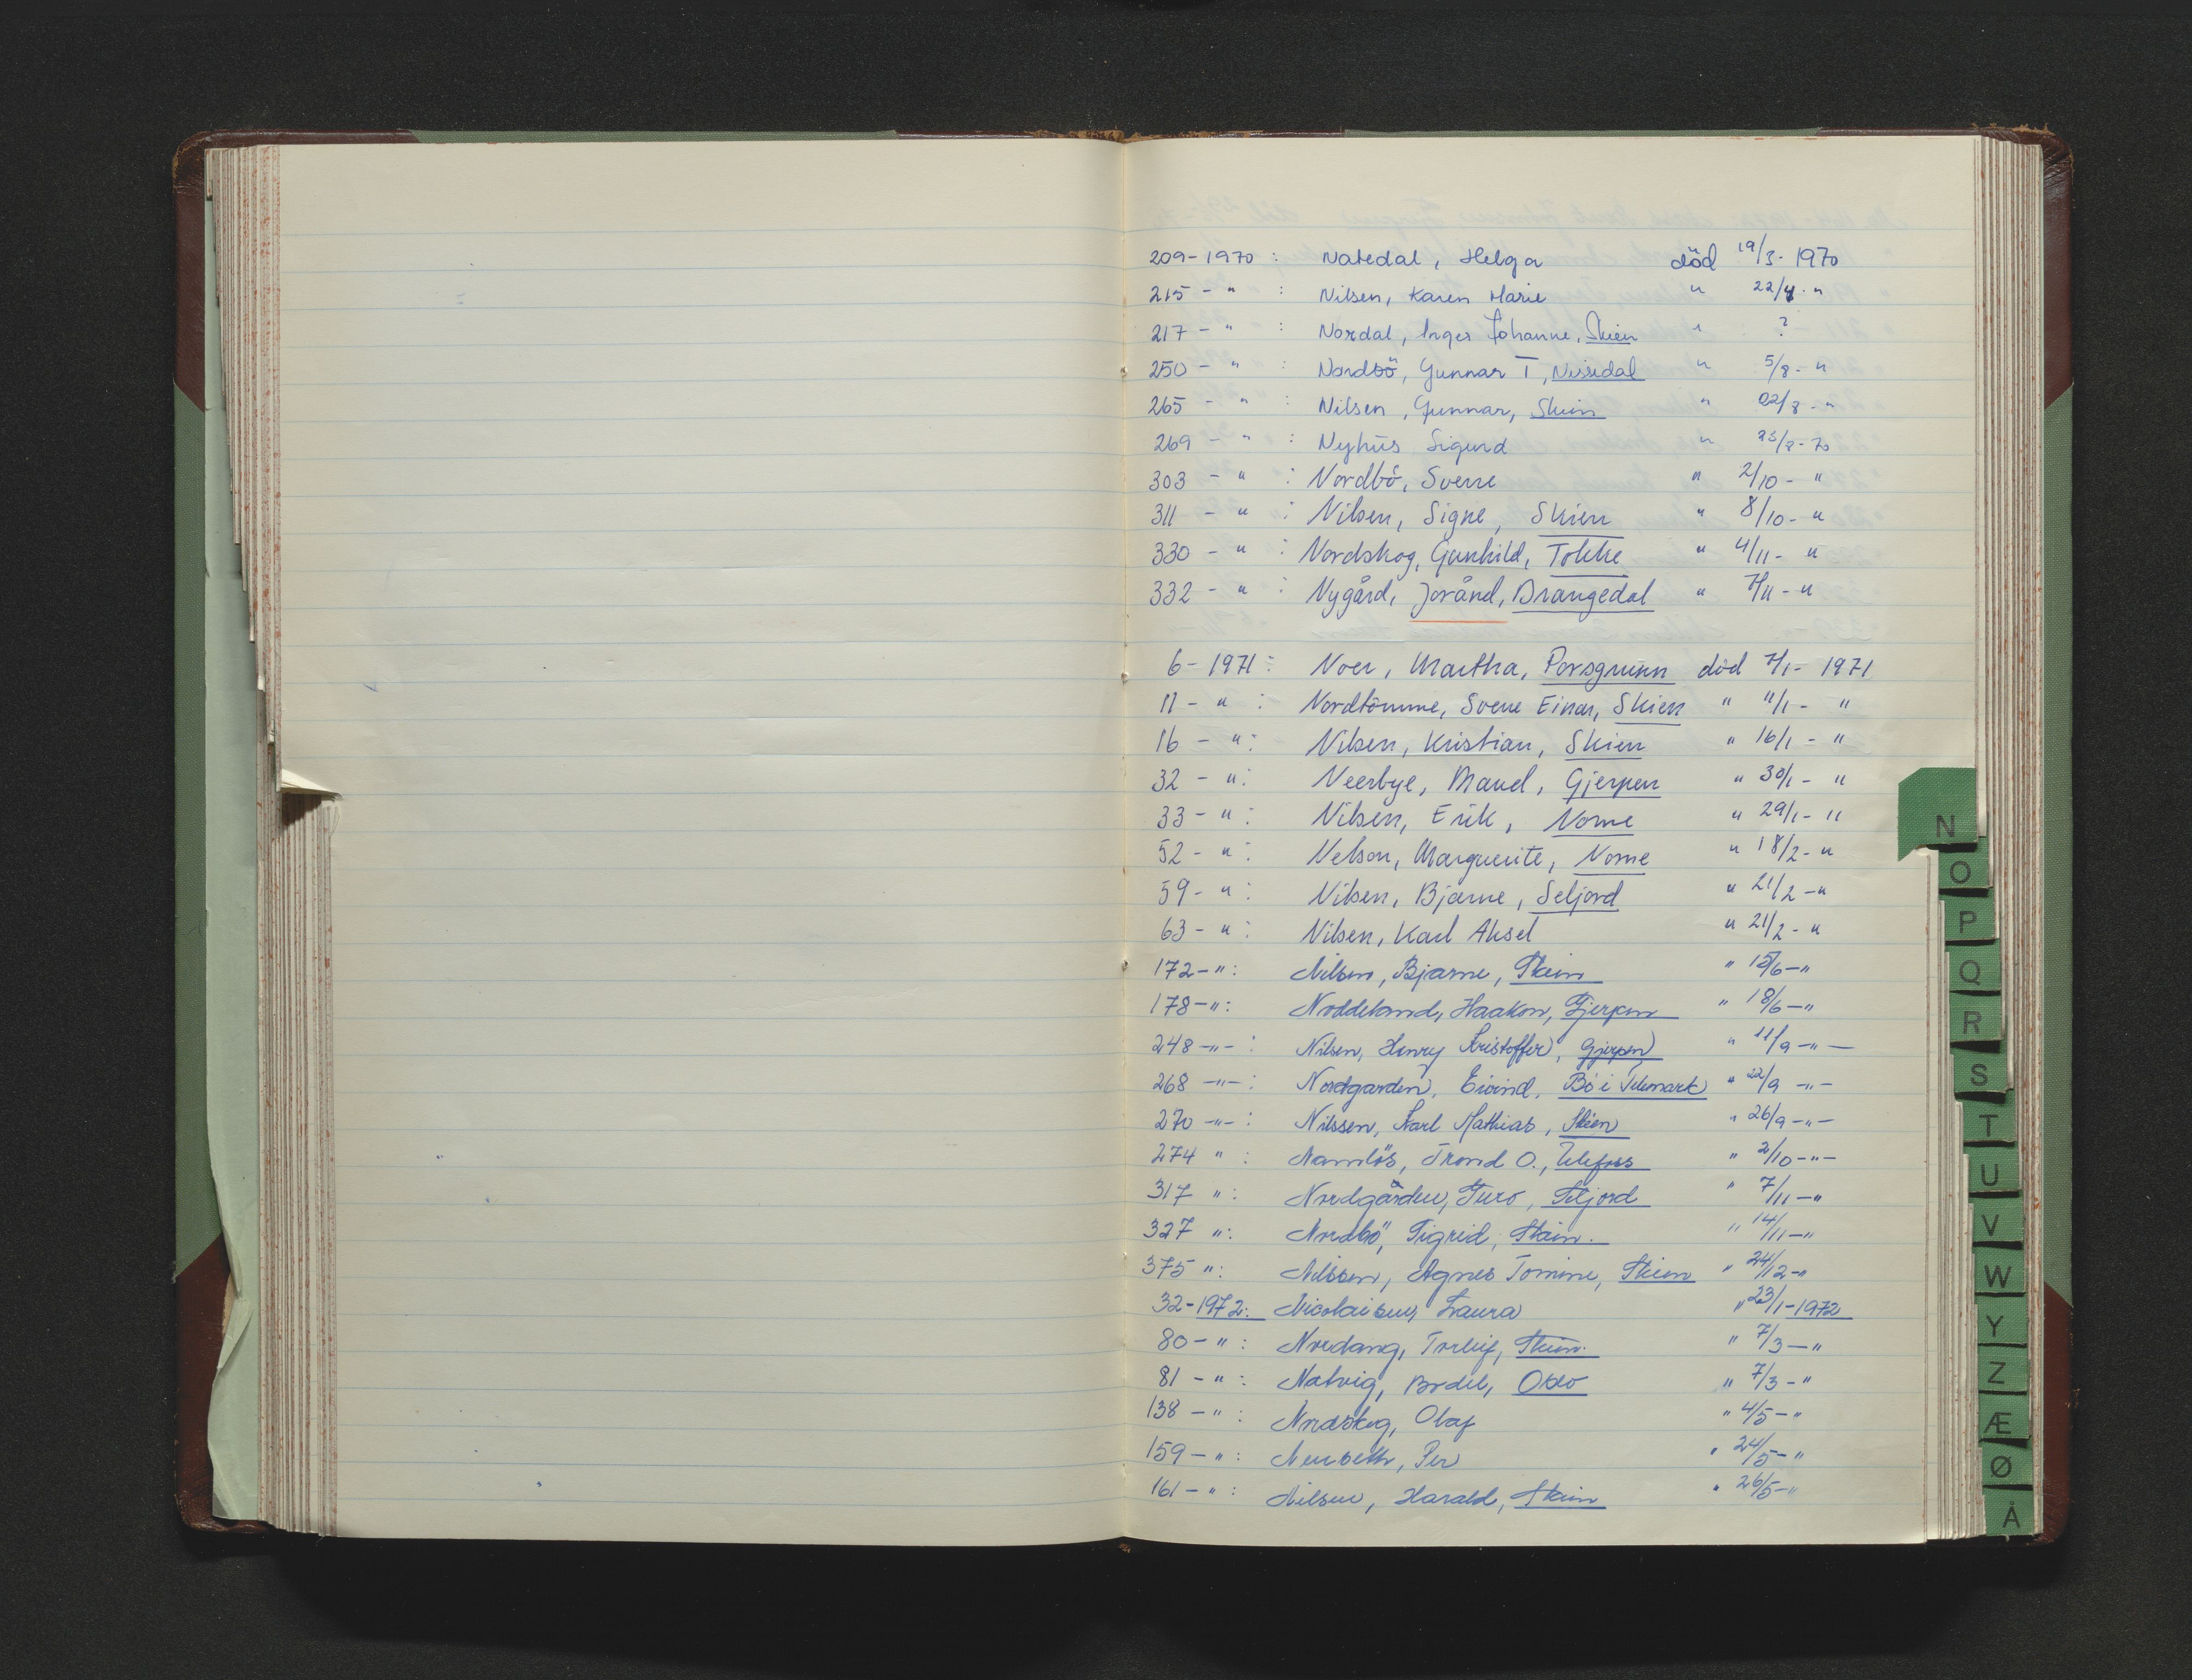 209-1970 : Natedal, Helga död 19/3-1970
215 - " : Nilsen, Karen Marie " 22/4-"
217 - " : Nordal, Inger Johanne, Skien " ?
250 - " : Nordbö, Gunnar T, Nissedal " 5/8-"
265 - " : Nilsen, Gunnar, Skien " 22/8-"
269 - " : Nyhus Sigurd " 23/8-70
303 - " : Nordbö, Sverre " 2/10-"
311 - " : Nilsen, Signe, Skien " 8/10-"
330 - " : Nordskog, Gunhild, Tokke " 4/11-"
332 - " : Nygård, Jorånd, Drangedal " 7/11-"
6-1971 : Noer, Martha, Porsgrunn död 7/1-1971
11 - " : Nordtömme, Sverre Einar, Skien " 11/1-"
16 - " : Nilsen, Kristian, Skien " 16/1-"
32 - " : Neerbye, Maud, Gjerpen " 30/1-"
33 - " : Nilsen, Erik, Nome " 29/1-"
52 - " : Nelson, Marguerite, Nome " 18/2-"
59 - " : Nilsen, Bjarne, Seljord " 21/2-"
63 - " : Nilsen, Karl Aksel " 21/2-"
172-" : Nilsen, Bjarne, Skien " 15/6-"
178-" : Noddeland, Haakon, Gjerpen " 18/6-"
248-"- : Nilsen, Henry Kristoffer, Gjerpen " 11/9-"-
268-"- : Nordgarden, Eivind, Bö i Telemark " 22/9-"-
270-"- : Nilssen, Karl Mathias, Skien " 26/9-"-
274 " : Namlös, Trond O., Ulefoss " 2/10-"-
317 " : Nordgården, Turo, Seljord " 7/11-"
327 " : Nordbö, Sigrid, Skien. " 14/11-"
375 " : Nilssen, Agnes Tomine, Skien " 24/12-"
32-1972 : Nicolaisen, Laura " 23/1-1972
80-" : Nordang, Torleif, Skien. " 7/3-"
81-" : Natvig, Bodil, Oslo " 7/3-"
138-" : Nordskog, Olaf " 4/5-"
159-" : Per " 24/5-"
161-" : Nilsen, Harald, Skien " 26/5-"
N
O
P
Q
R
S
T
U
V
W
Y
Z
Æ
Ø
Å